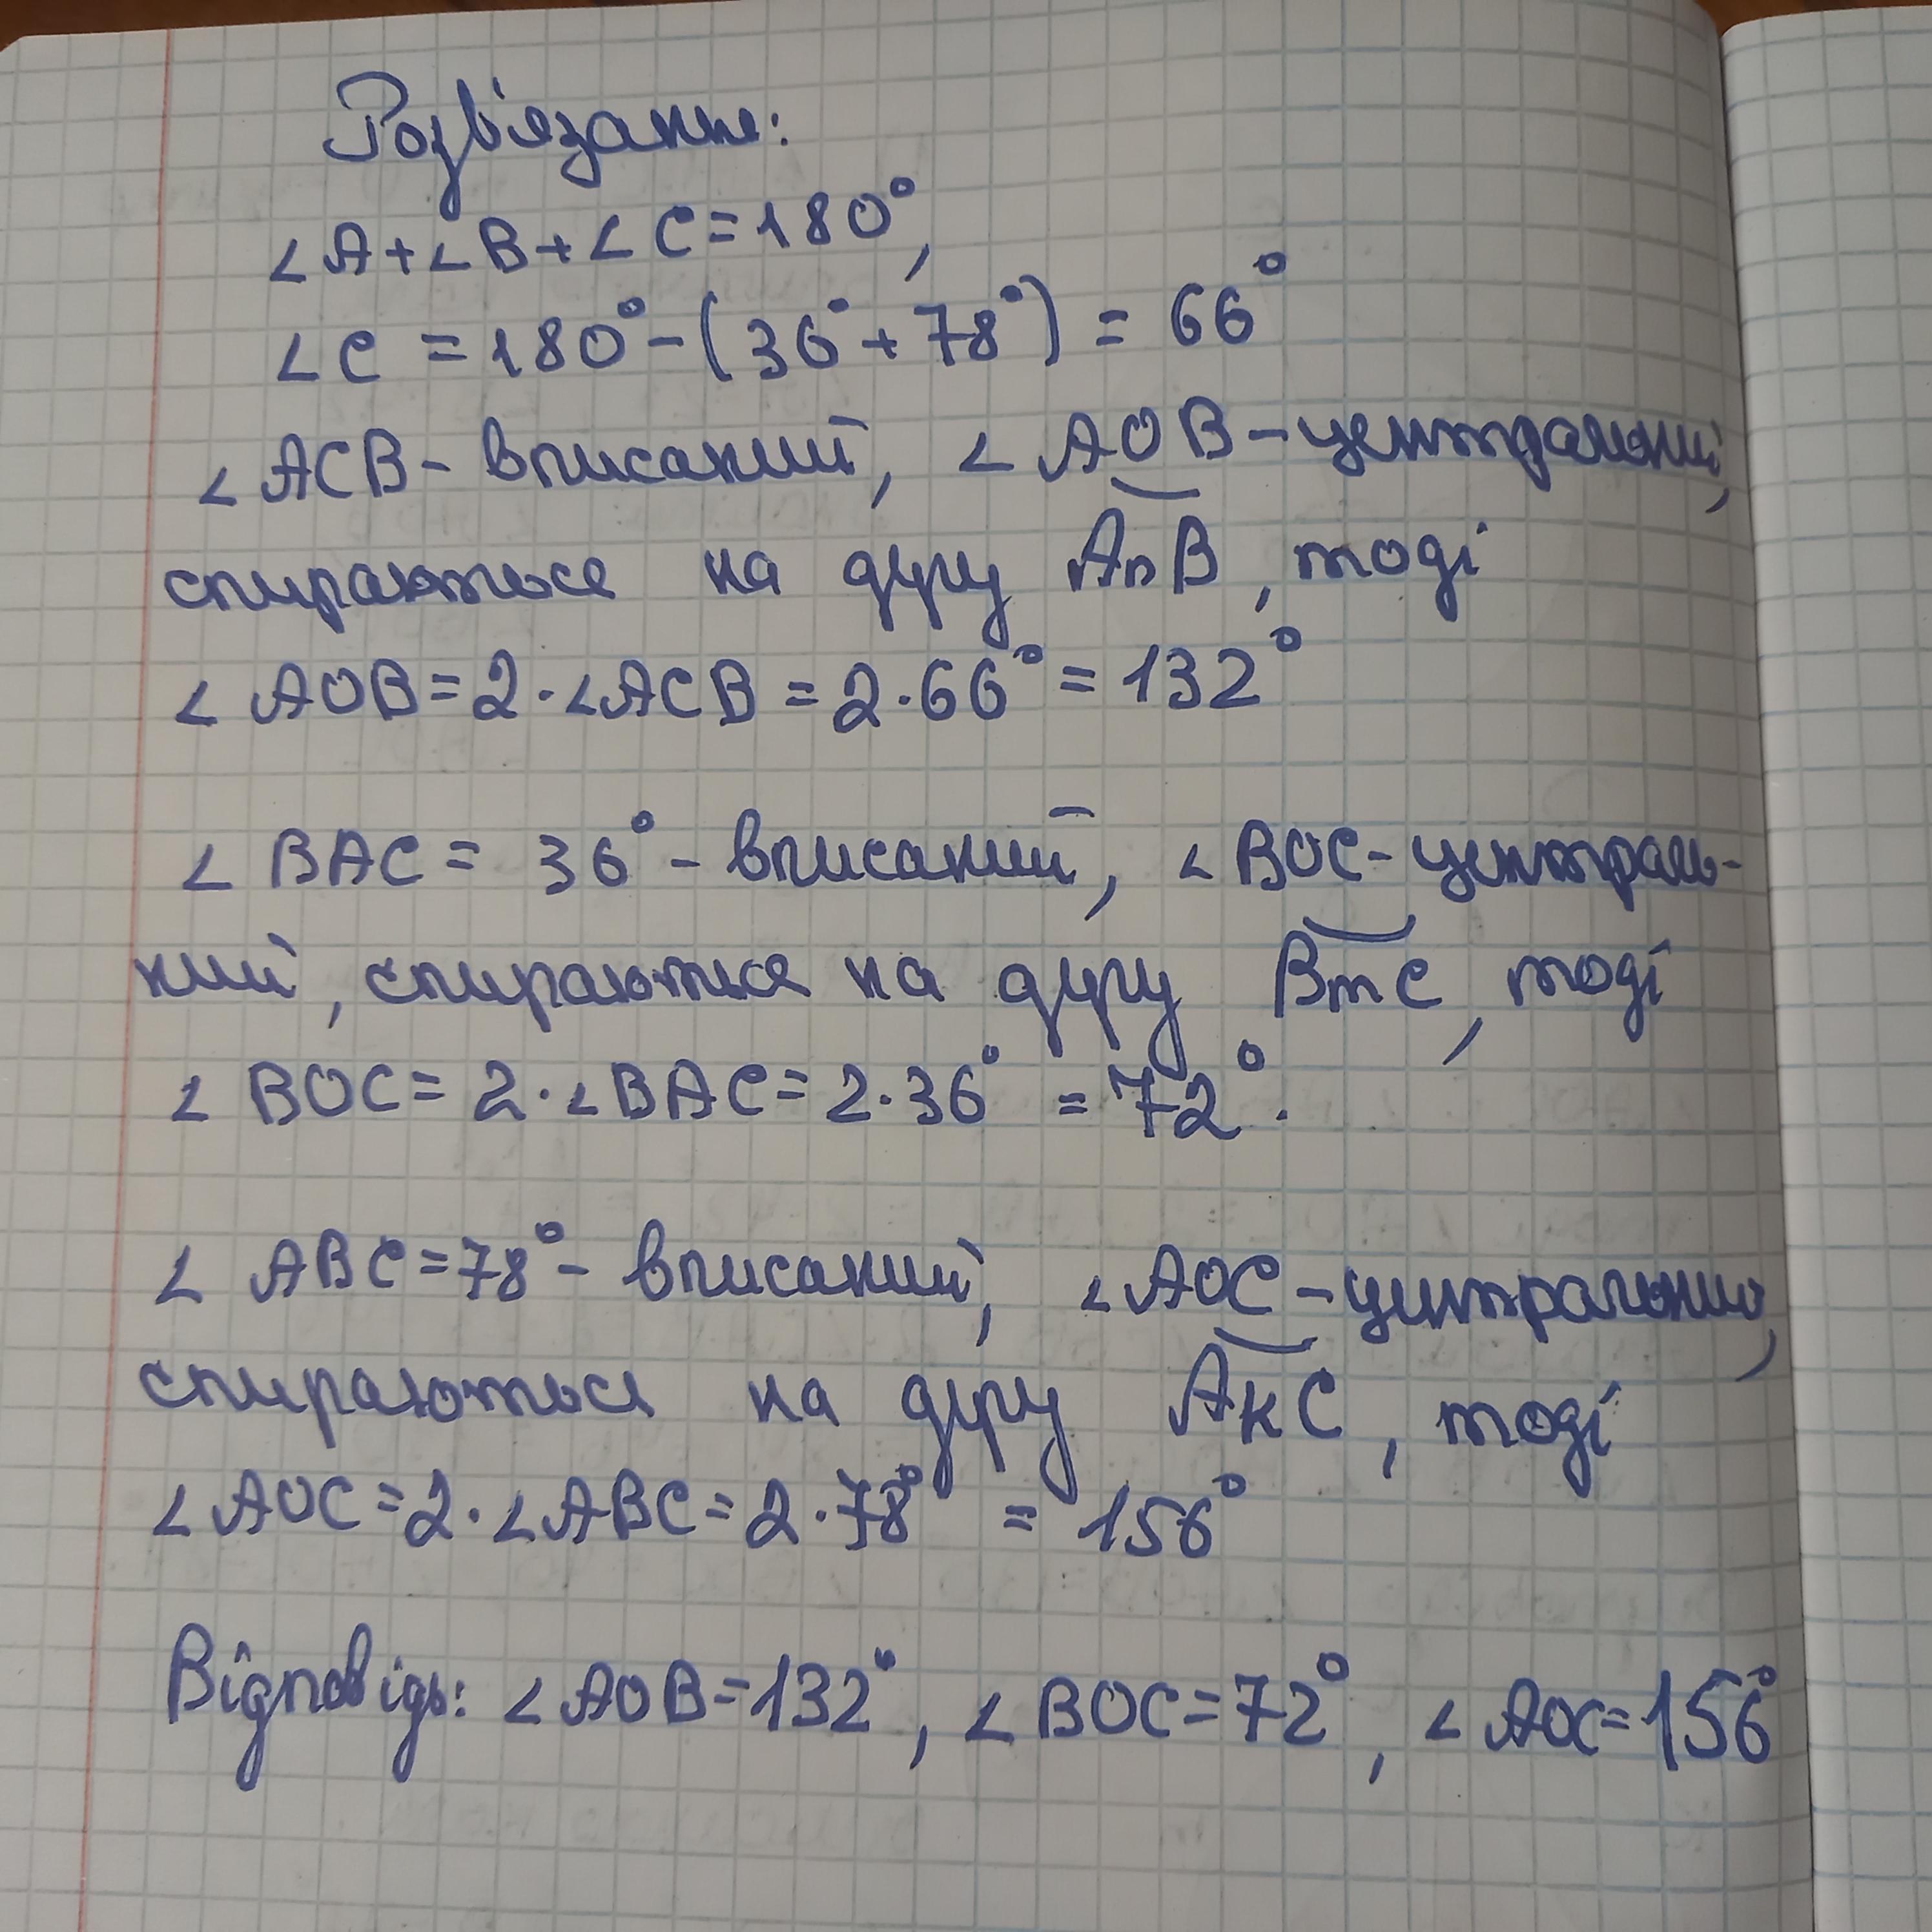 Розв'язання:
∠A+∠B+∠C=180°,
∠C =180°-(36°+78°) = 66°
∠ACB- вписаний, ∠AOB-центральний,
спираються на дугу AnB, тоді
∠AOB=2·∠ACB=2·66°=132°
∠BAC= 36°- вписаний, ∠BOC-централь-
ний, спираються на дугу BmC, тоді
∠BOC=2·∠BAC=2·36° =72°.
∠ABC=78°- вписаний, ∠AOC-центральний,
спираються на дугу AкC, тоді
∠AOC=2·∠ABC=2·78° = 156°
Відповідь: ∠AOB=132°, ∠BOC=72°, ∠AOC=156°